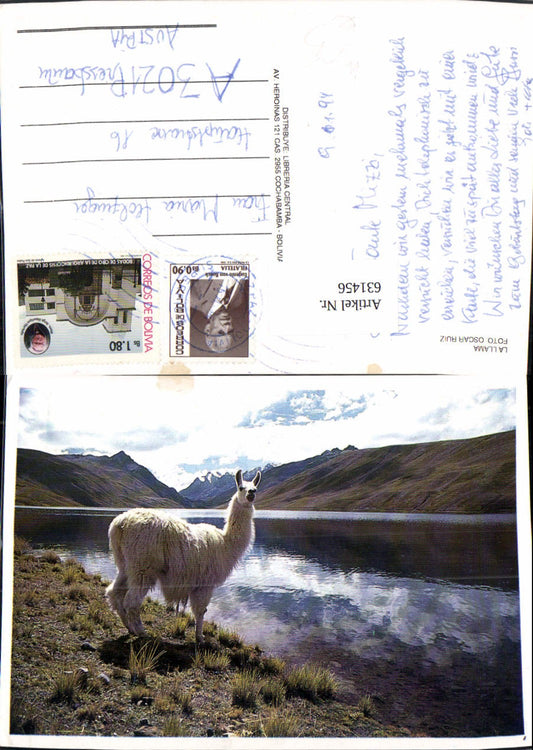 LA LLAMA
FOTO OSCAR RUIZ
9.01.94
Tante Mizzi,
Nachdem wir gestern mehrmals vergeblich
versucht haben, Dich telephonisch zu
erreichen, versuchen wir es jetzt mit einer
Karte, die viel zu spät ankommen wird!
Wir wünschen Dir alles Liebe und Gute
zum Geburtstag und
Artikel Nr.
631456
DISTRIBUYE: LIBRERIA CENTRAL
AV. HEROINAS 121 CAS. 2955 COCHABAMBA - BOLIVIA
CORREOS DE BOLIVIA
BODAS DE ORO DE LA ARQUIDIOCESIS DE LA PAZ
Bs 1.80
Bs 0.90
FILATELIA
Frau Maria
Hauptstrasse 86
A 3021 Pressbaum
AUSTRIA